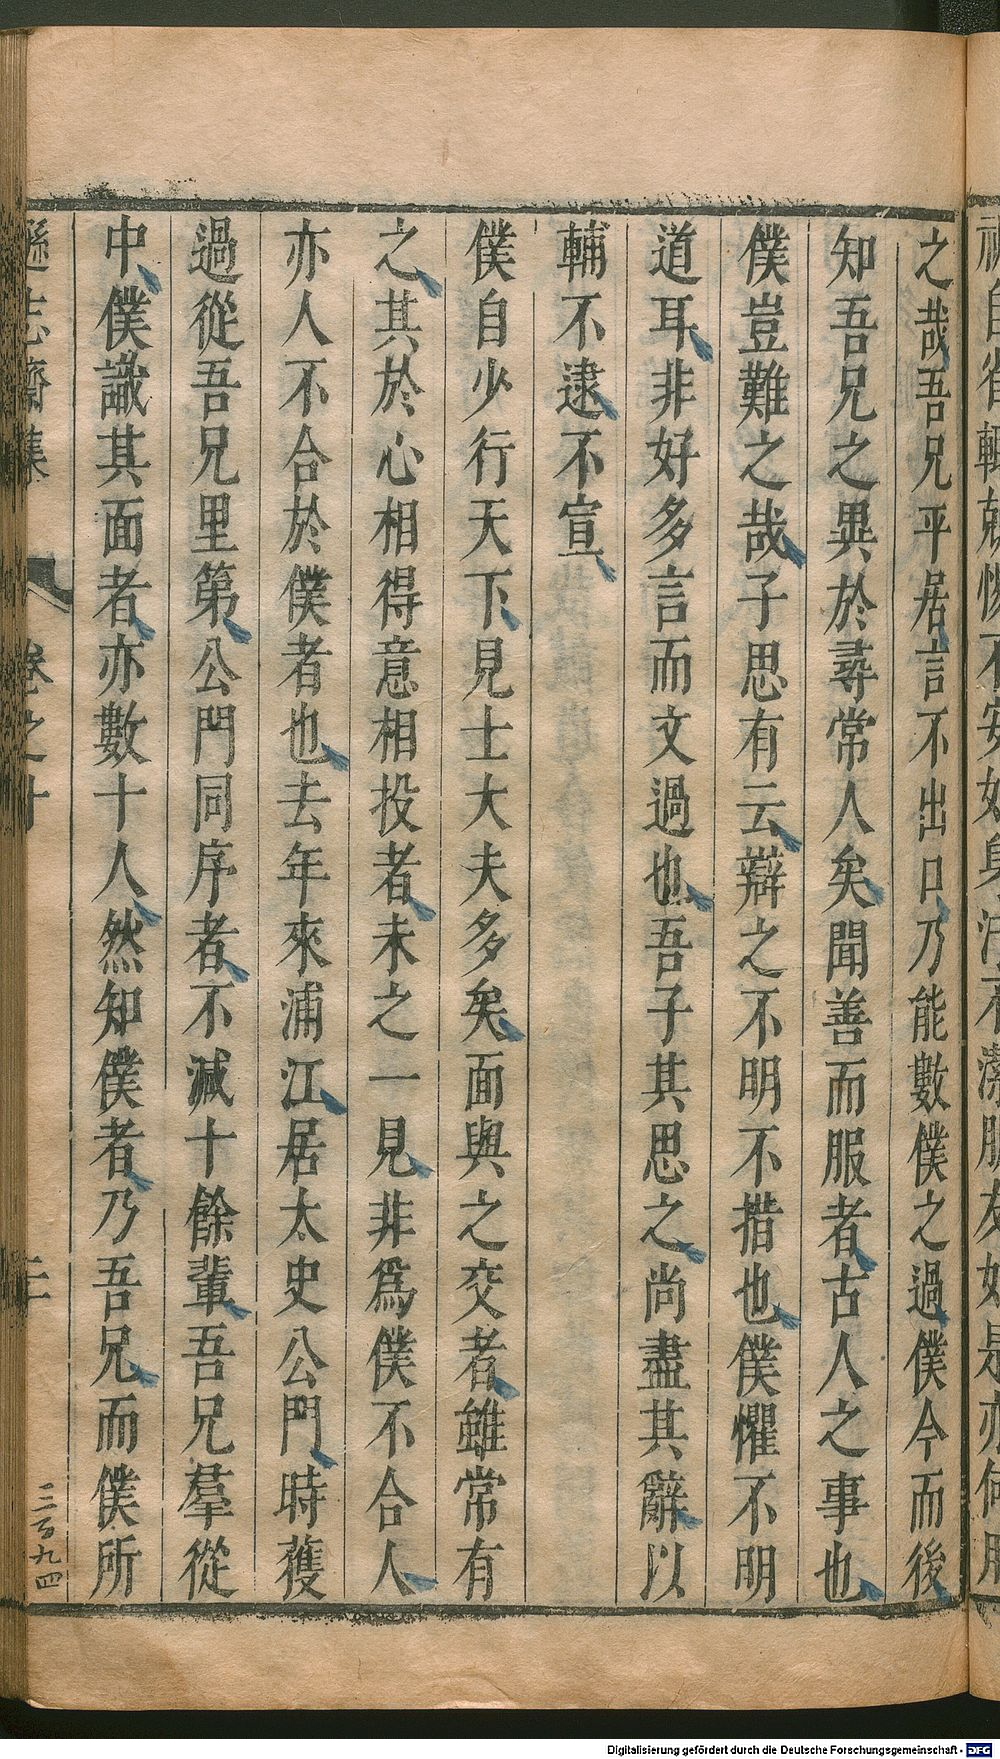 之哉吾兄平居言不出口乃能數僕之過僕今而後
知吾兄之異於尋常人矣聞善而服者古人之事也
僕豈難之哉子思有云辯之不明不措也僕懼不明
道耳非好多言而文過也吾子其思之尚盡其辭以
輔不逮不宣
僕自少行天下見士大夫多矣面與之交者雖常有
之其於心相得意相投者未之一見非為僕不合人
亦人不合於僕者也去年來浦江居太史公門時獲
過從吾兄里第公門同序者不減十餘輩吾兄羣從
中僕識其面者亦數十人然知僕者乃吾兄而僕所
遜志齋集 卷之十
二百九四
Digitalisierung gefördert durch die Deutsche Forschungsgemeinschaft - DFG